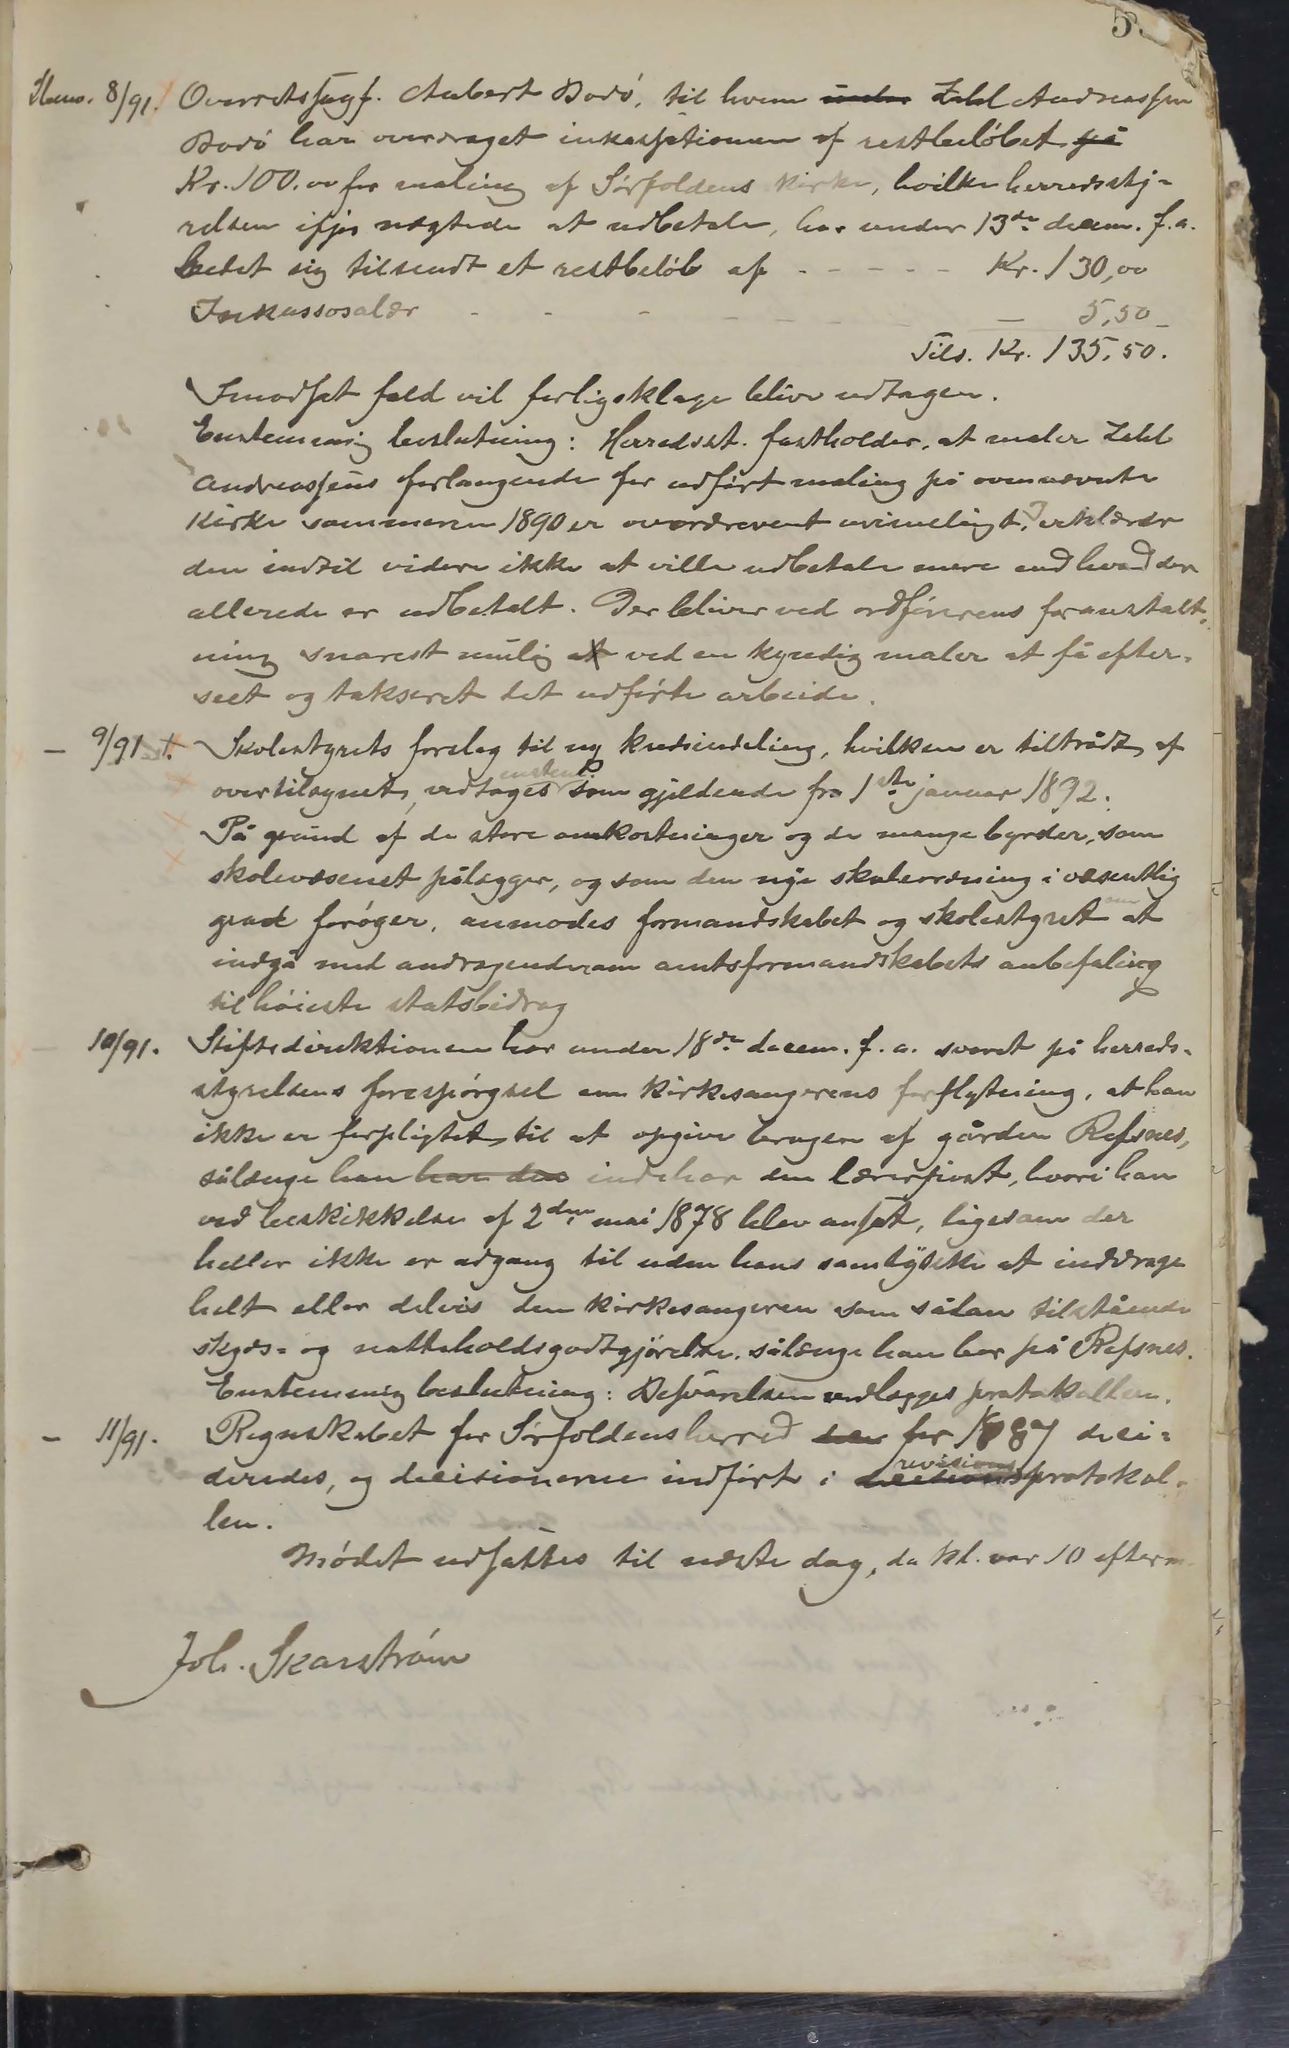 5
8/91. Overretssagf. Aubert Bodö, til hvem under Zahl Andreassen
Bodö har overdraget inkassationen af restbelöbet på
Kr. 100.00 for maling af Sörfoldens kirke, hvilke herredsty-
relsen ifjor nægtede at udbetale, har under 13de decem. f.a.
bedet sig tilsendt et restbelöb af - - - - - Kr. 130,00
Inkassosalær - - - - - - - - 5,50
Tils. Kr. 135,50.
I modsat fald vil forligsklage blive udtagen.
Enstemmig beslutning: Herredsst. fastholder, at maler Zahl
Andreassens forlangende for udfört maling på ovennævnte
kirke sommeren 1890 er overdrevent urimeligt, erklærer
den indtil videre ikke at ville udbetale mere end hvad der
allerede er udbetalt. Der bliver ved ordförerens foranstalt-
ning snarest mulig at ved en kyndig maler at få efter-
seet og takseret det udförte arbeide.
— 9/91 Skolestyrets forslag til ny kredsindeling, hvilken er tiltrådt af
overtilsynet, vedtages enstem. som gjeldende fra 1ste januar 1892.
På grund af de store omkostninger og de mange byrder, som
skolevæsenet pålægger, og som den nye skoleordning i væsentlig
grad foröger, anmodes formandskabet og skolestyret om at
indgå med andragende om amtsformandskabets anbefaling
til höieste statsbidrag
— 10/91. Stiftsdirektionen har under 18de decem. f.a. svaret på herreds-
styrelsens forespörgsel om kirkesangerens forflytning, at han
ikke er forpligtet til at opgive brugen af gården Refsnes,
sålænge han har den indehar den lærerpost, hvori han
ved beskikkelse af 2den mai 1878 blev ansat, ligesom der
heller ikke er adgang til uden hans samtykke at inddrage
helt eller delvis den kirkesangeren som sådan tilstående
skyds- og natteholdsgodtgjörelse, sålænge han bor på Refsnes.
Enstemmig beslutning: Besvarelsen vedlægges protokollen.
— 11/91. Regnskabet for Sörfoldens herred for 1887 deci-
deredes, og decisionerne indfört i revisionsprotokol-
len.
Mödet udsattes til næste dag, da kl. var 10 efterm.
Joh. Skarström